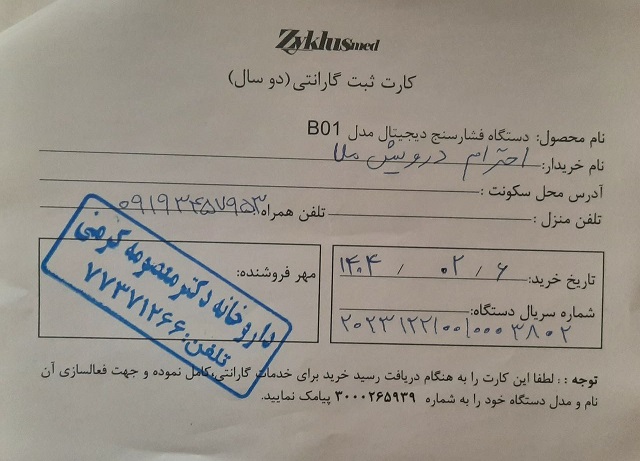 Zyklusmed
کارت ثبت گارانتی(دو سال)
نام محصول: دستگاه فشارسنج دیجیتال مدل B01
نام خریدار: احترام درویش ملا
آدرس محل سکونت :
تلفن منزل : تلفن همراه ۰۹۱۹۳۴۵۷۹۵۳
تاریخ خرید: ۱۴۰۴ / ۰۲ / ۶
شماره سریال دستگاه:
۲۰۲۳۱۲۲۱۰۰۱۰۰۰۳۸۰۲
مهر فروشنده:
داروخانه دکتر معصومه کرمی
تلفن: ۷۷۳۷۱۲۶۶
توجه : : لطفا این کارت را به هنگام دریافت رسید خرید برای خدمات گارانتی،کامل نموده و جهت فعالسازی آن
نام و مدل دستگاه خود را به شماره ۳۰۰۰۲۶۵۹۳۹ پیامک نمایید.